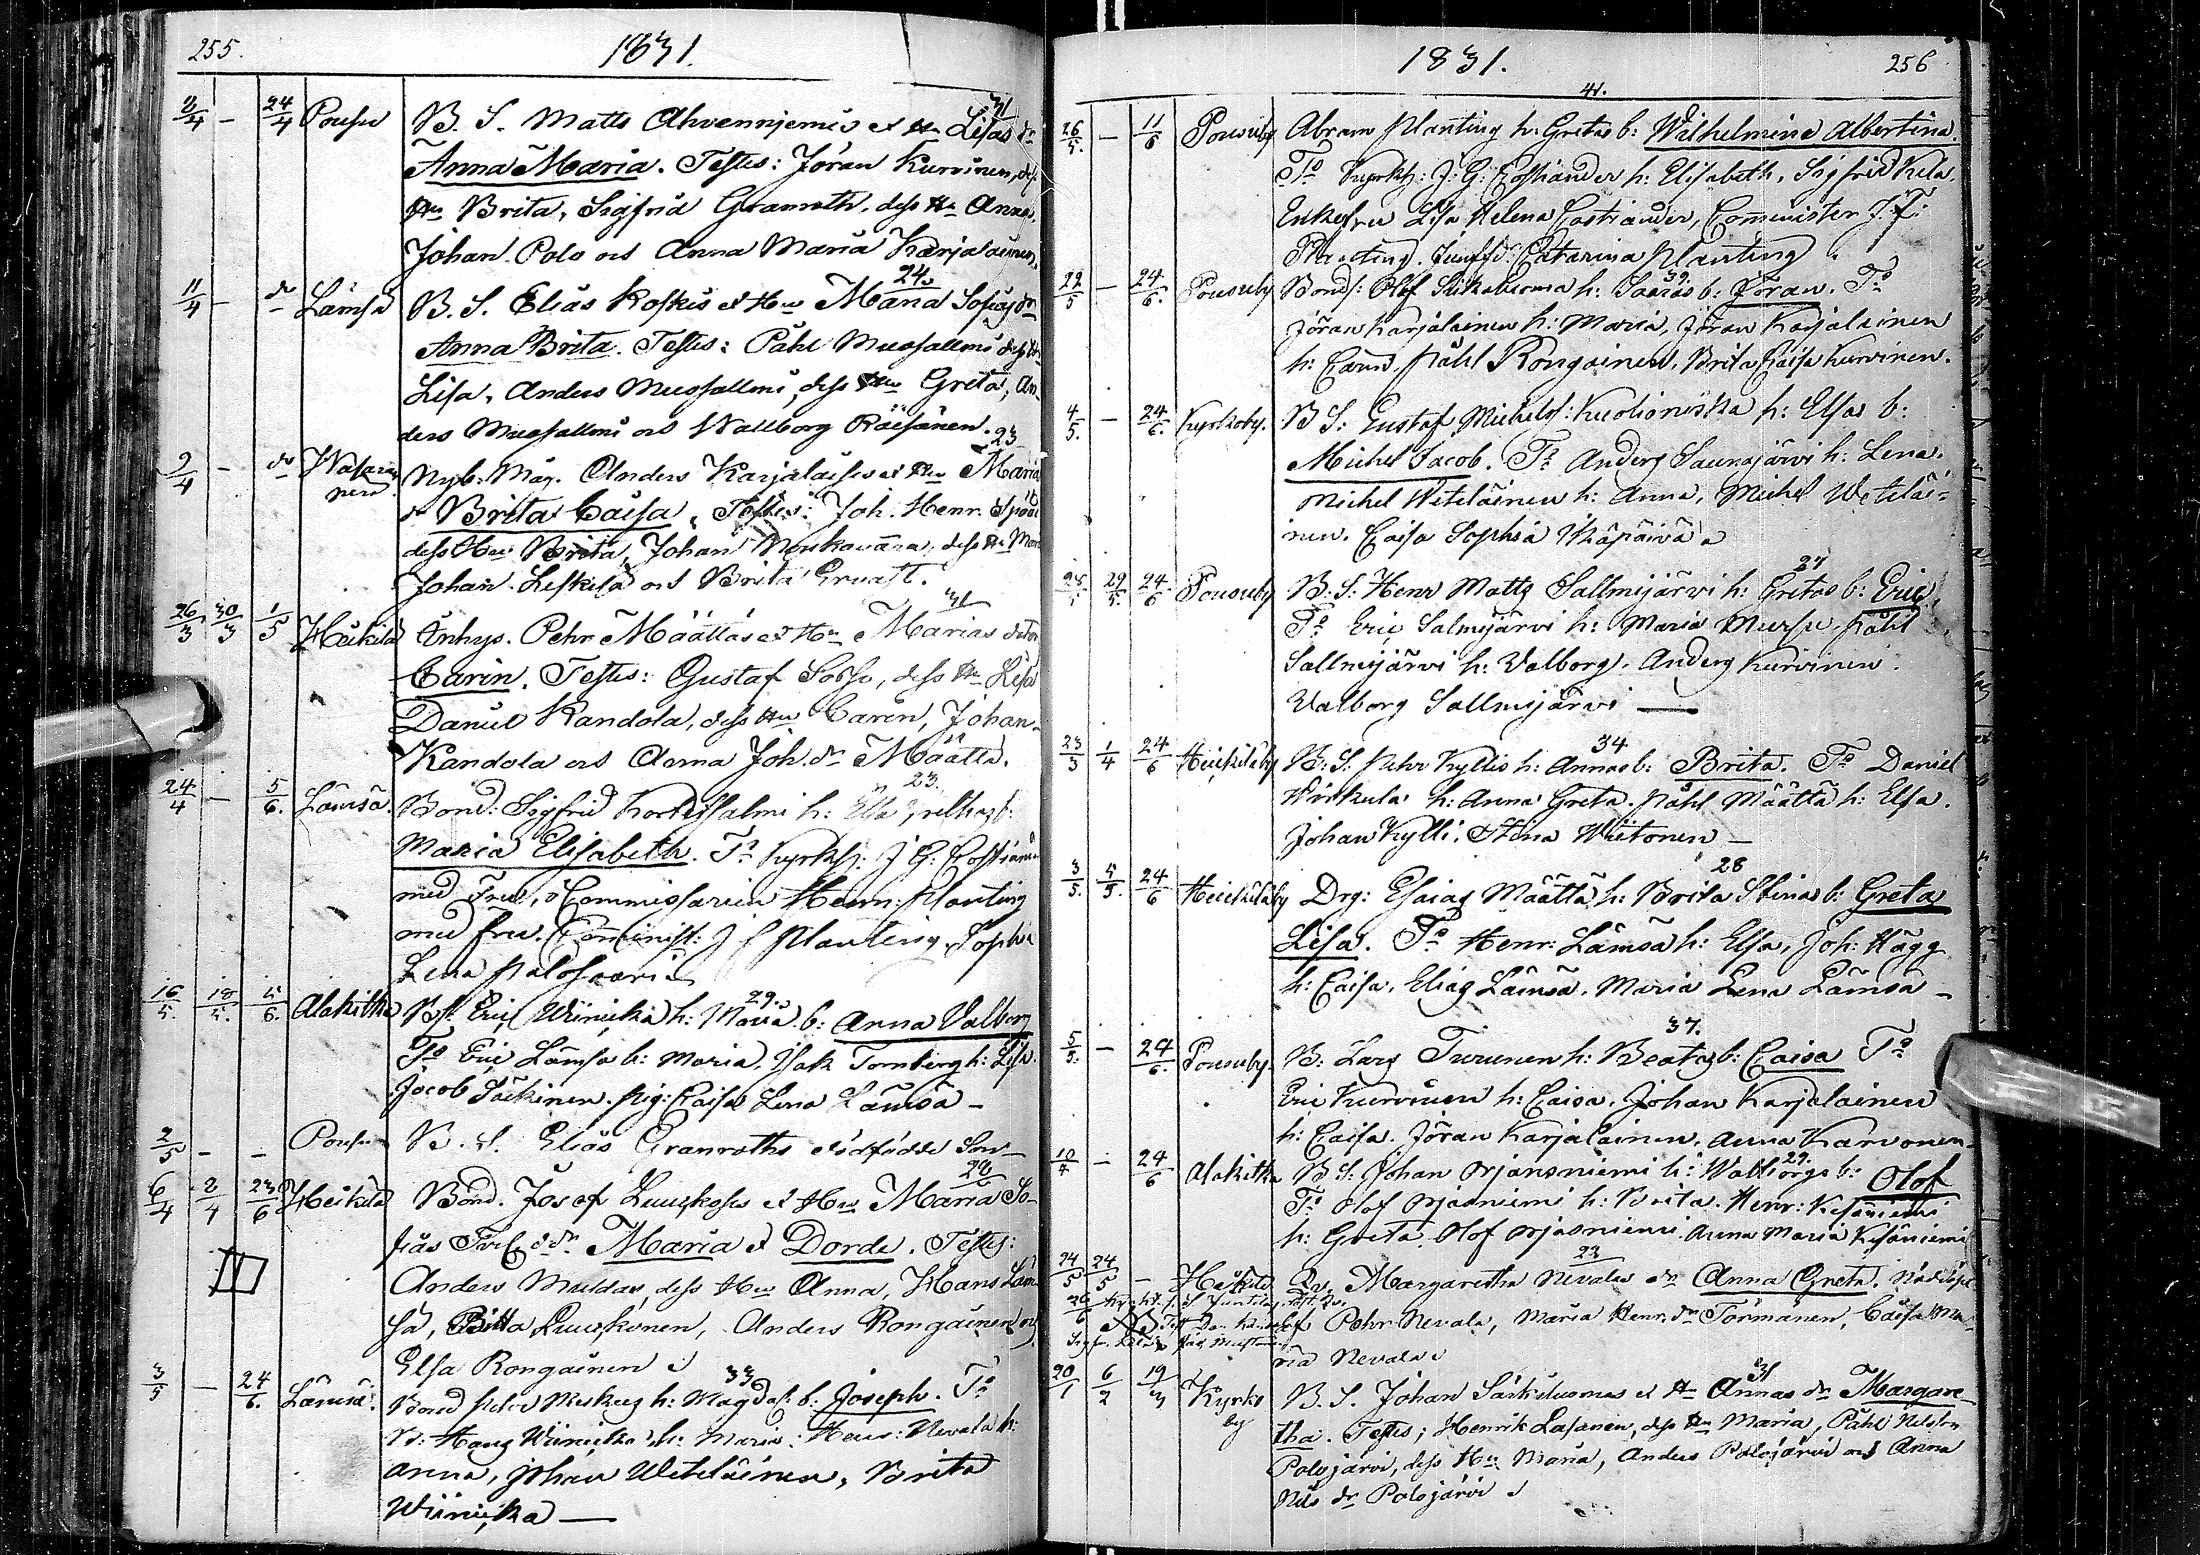 255.
1831.
2/4 — 24/4 Pousu B. S. Matts Ahvennjemis et Hu Lisas dr 31
Anna Maria. Testes: Jöran Kurvinen, dess
Hu Brita, Sigfrid Granroth, dess Hu Anna,
Johan Polo och Anna Maria Karjalainen,
11/4 — do Lämsä B. S. Elias Koskis et Hu Maria Sofias dr 24
Anna Brita. Testes: Påhl Mursallmi dess Hu
Lisa, Anders Mursallmi, dess Hu Greta, An-
ders Mursallmi och Wallborg Räisänen.
9/4 — do Nyb. Måg. Anders Karjalaises et Hu Maria 23
dr Brita Caisa, Testes: Joh. Henr.
dess Hu Brita, Johan dess Hu
Johan Leskelä och Brita Ervast.
26/3 30/3 1/5 Heikilä Inhys. Pehr Määttäs et Hu Marias dotter 31
Carin. Testes: Gustaf dess Hu Lisa
Daniel Kandola, dess Hu Caren, Johan
Kandola och Anna Joh. dr Määttä.
24/4 — 5/6. Lämsä. Bond: Sigfrid Kortesalmi h: b: 23.
Maria Elisabeth. To Kyrkh: J G: Costiander
med Fru, Commissarien Henr: Planting
med fru. Comminist: J F Planting, Sophia
Lena Palosaari
16/5 18/5. 5/6. Alakitka Bs: Eric Wiinicka h: Maria b: Anna Valborg 29.
To Eric Lämsä h: Maria, Isak Tornberg h: Lisa.
Jacob Säkinen. Pig: Caisa Lena Lämsä —
2/5 — — Pousu B. S. Elias Granroths dödfödde Son —
6/4 8/4 23/6 Heikilä Bond. Josef Luuskoses et Hu Maria So- 28
fias Tvil. ddr Maria et Dorde. Testes:
Anders Mulldas, dess Hu Anna, Hans Läm-
sä, Britta Luuskonen, Anders Rongainen och
Elsa Rongainen
3/5 — 24/6. Lämsä. Bond h: Magdal: b: Joseph. To 33
B: Hans Wiinicka h: Maria. Henr: Nevala h:
Anna, Johan Weteläinen, Brita
Wiinicka —
1831.
256
26/5. — 11/6 Pousuby Abram Planting h: Gretas b: Wilhelmina Albertina. 41.
To Kyrkh: J: G: Costiander h: Elisabeth, Sigfrid Kela.
Enkefru Lisa Helena Costiander, Cominister J: F:
Planting. Jungfr: Catarina Planting.
22/5 — 24/6. Pousuby Bond: Olof h: Saaras b: Jöran. To 39.
Jöran Karjalainen h: Maria, Jöran Karjalainen
h: Carin, Påhl Rongainen, Brita Caisa Kurvinen.
4/5. — 24/6. Kyrkoby. B S: Gustaf Michelss: Kuolioniska h: Elsas b:
Michel Jacob. To Anders Saunajärvi h: Lena.
Michel Weteläinen h: Anna, Michel Wetelä=
inen. Caisa Sophia Ikäpäivä
29/5. 24/6 Pousuby B: S: Henr Matts Sallmijärvi h: Gretas b: Eric. 27
To Eric Salmijärvi h: Maria Mursu. Påhl
Sallmijärvi h: Valborg. Anders Kurvinen.
Walborg Sallmijärvi —
23/3 1/4 24/6 Heickiläby B: S: Pehr Kyllis h: Annas b: Brita. To Daniel 34
Wirkula h: Anna Greta. Påhl Määttä h: Elsa.
Johan Kylli. Stina Wiitonen —
3/5. 5/5. 24/6 Heickiläby Drg: Esaias Määttä h: Brita Stinas b: Greta 28
Lisa. To Henr: Lämsä h: Elsa, Joh: Hägg
h: Caisa, Elias Lämsä, Maria Lena Lämsä —
5/5. — 24/6. Pousuby. B: Lars Turunen h: Beatas b: Caisa To 37.
Eric Kurvinen h: Caisa. Johan Karjalainen
h: Caisa. Jöran Karjalainen, Anna Karvonen
10/4 — 24/6 Alakitka B S: Johan Orjasniemi h: Wallborgs b: Olof 29.
To Olof Orjasniemi h: Brita. Henr: Kesäniemi
h: Greta. Olof Orjasniemi. Anna Maria Kesäniemi
24/5 24/5 — Heikilä Qv. Margaretha Nevalas dr Anna Greta. Nöddöpt 23
af Pehr Nevala, Maria Henr. dr Törmänen, Caisa Ma-
ria Nevala
20/1 6/2 19/3 Kyrko by B. S. Johan Särkiluomas et Hu Annas dr Margare- 31
tha. Testes; Henrik Lasanen, dess Hu Maria, Påhl Nilsson
Polojärvi, dess Hu Maria, Anders Polojärvi och Anna
Nils dr Polojärvi